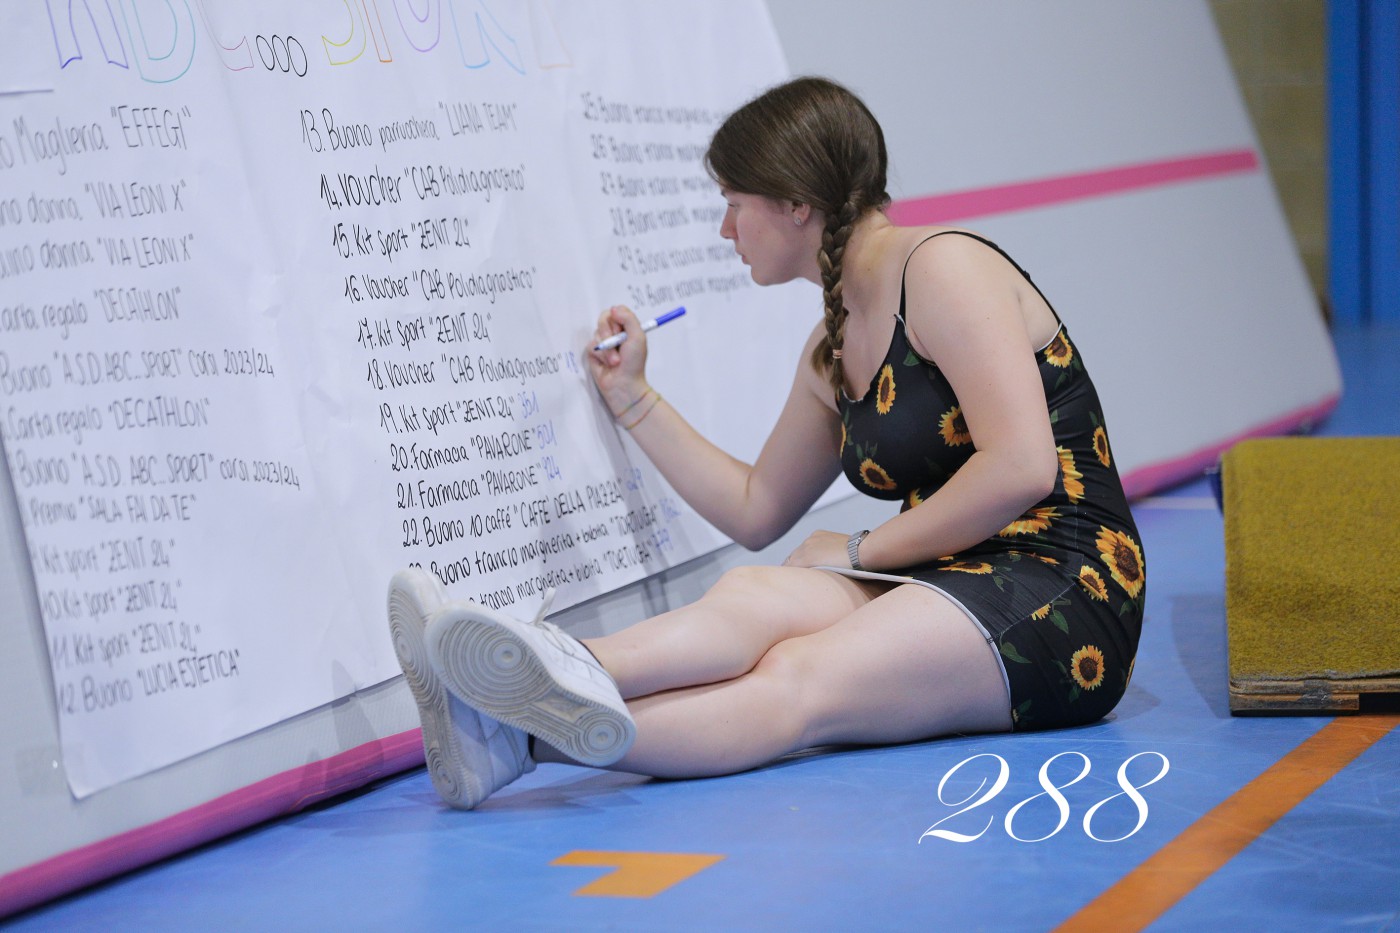 ABC...SPORT
Maglieria "EFFEGI"
donna "VIA LEONI X"
donna "VIA LEONI X"
Carta regalo "DECATHLON"
Buono "A.S.D. ABC...SPORT" corsi 2023/24
Carta regalo "DECATHLON"
Buono "A.S.D. ABC...SPORT" corsi 2023/24
Premio "SALA FAI DA TE"
Kit sport "ZENIT 24"
10. Kit sport "ZENIT 24"
11. Kit sport "ZENIT 24"
12. Buono "LUCIA ESTETICA"
13. Buono parrucchiera "LIANA TEAM"
14. Voucher "CAB Polidiagnostico"
15. Kit sport "ZENIT 24"
16. Voucher "CAB Polidiagnostico"
17. Kit sport "ZENIT 24"
18. Voucher "CAB Polidiagnostico"
19. Kit sport "ZENIT 24" 351
20. Farmacia "PAVARONE" 501
21. Farmacia "PAVARONE" 924
22. Buono 10 caffé "CAFFÈ DELLA PIAZZA"
Buono trancio margherita + bibita "TORTUGA"
trancio margherita + bibita "TORTUGA"
25. Buono trancio margherita
26 Buono trancio
27 Buono trancio
28 Buono trancio
29 Buono trancio
30 Buono trancio margherita
288